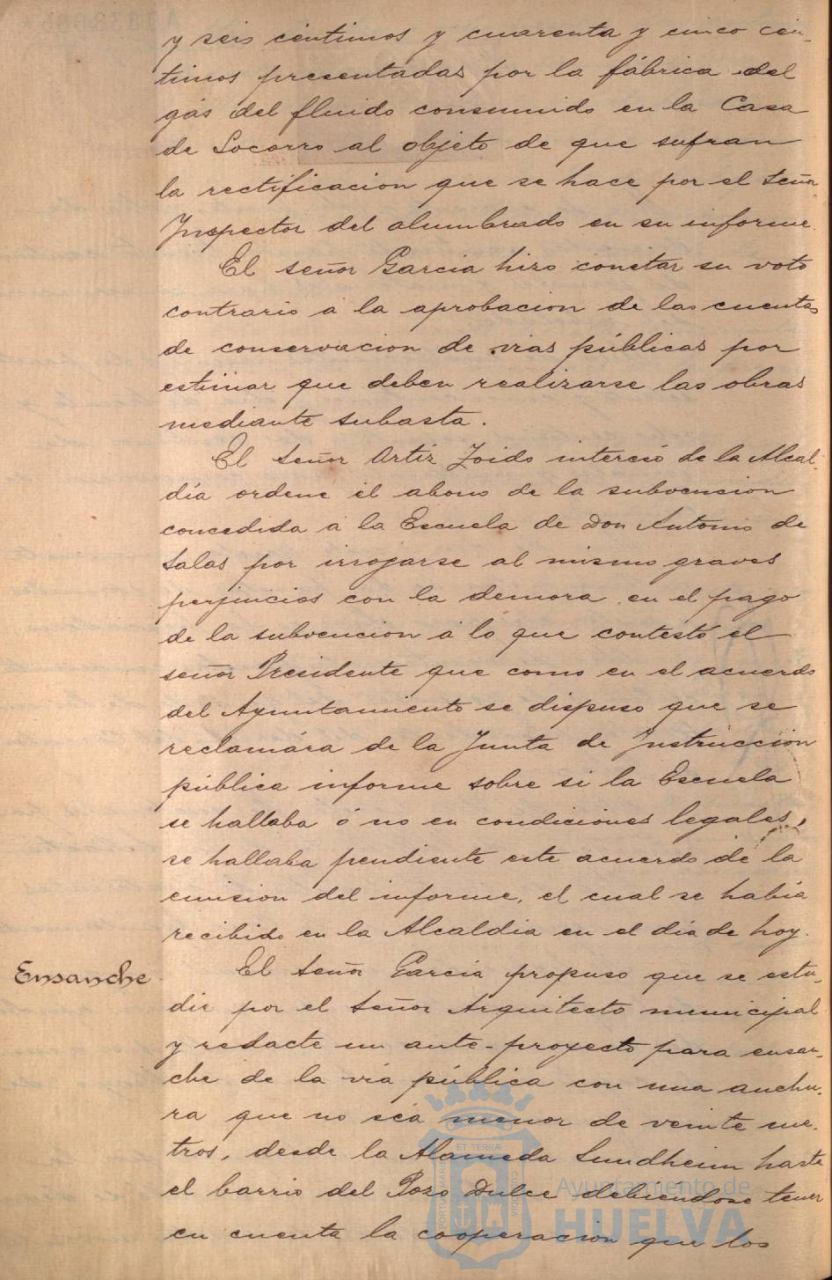 y seis céntimos y cuarenta y cinco cén-
timos presentadas por la fábrica del
gás del fluido consumido en la Casa
de Socorro al objeto de que sufran
la rectificacion que se hace por el Señor
Inspector del alumbrado en su informe.
El señor Garcia hizo constar su voto
contrario á la aprobacion de las cuentas
de conservacion de vias públicas por
estimar que deben realizarse las obras
mediante subasta.
El Señor Ortiz Zoido interesó de la Alcal-
día ordene el abono de la subvencion
concedida á la Escuela de Don Antonio de
Salas por irrogarse al mismo graves
perjuicios con la demora en el pago
de la subvencion á lo que contestó el
señor Presidente que como en el acuerdo
del Ayuntamiento se dispuso que se
reclamara de la Junta de Instruccion
pública informe sobre si la Escuela
se hallaba ó no en condiciones legales,
se hallaba pendiente este acuerdo de la
emision del informe, el cual se habia
recibido en la Alcaldia en el dia de hoy.
Ensanche
El Señor Garcia propuso que se estu-
die por el Señor Arquitecto municipal
y redacte un ante-proyecto para ensan-
che de la via pública con una anchu-
ra que no sea menor de veinte me-
tros, desde la Alameda Sundheim hasta
el barrio del Pozo Dulce debiendose tener
en cuenta la cooperacion que los
Ayuntamiento de
HUELVA